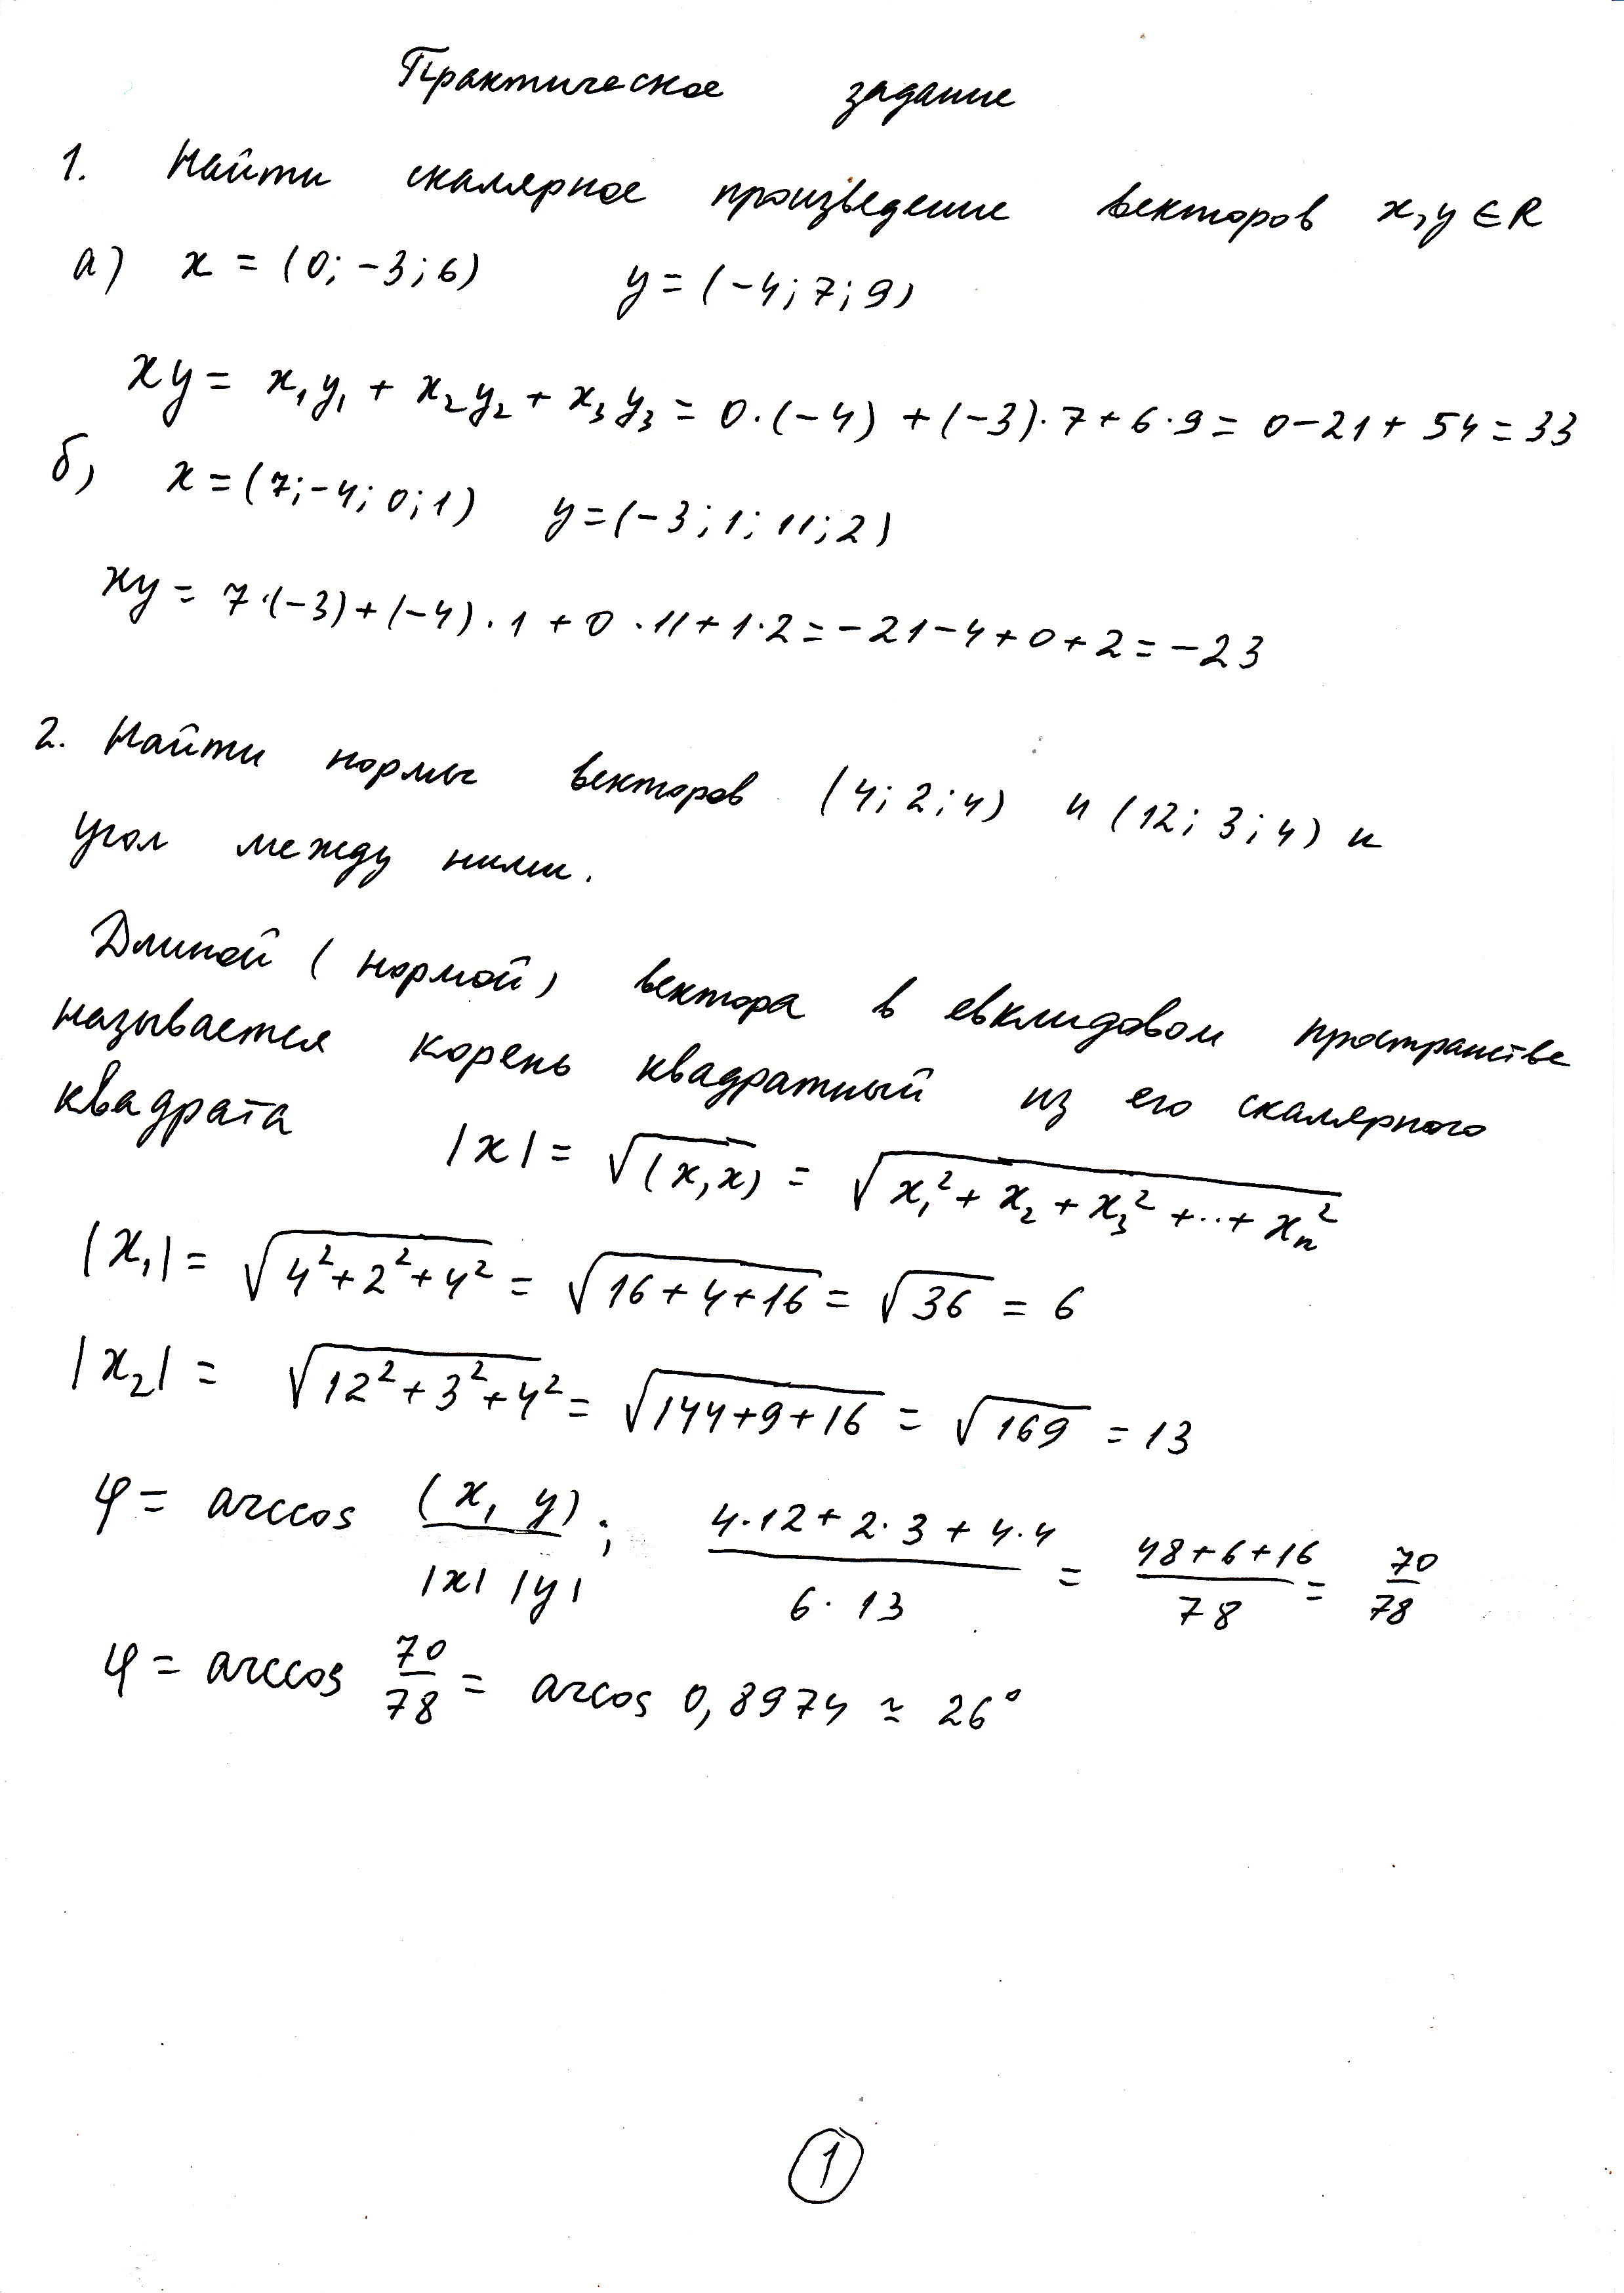 Практическое задание
1. Найти скалярное произведение векторов x, y ∈ R
а) x = (0; -3; 6) y = (-4; 7; 9)
xy = x₁y₁ + x₂y₂ + x₃y₃ = 0·(-4) + (-3)·7 + 6·9 = 0-21+54 = 33
б) x = (7; -4; 0; 1) y = (-3; 1; 11; 2)
xy = 7·(-3) + (-4)·1 + 0·11 + 1·2 = -21-4+0+2 = -23
2. Найти нормы векторов (4; 2; 4) и (12; 3; 4) и
угол между ними.
Длиной (нормой) вектора в евклидовом пространстве
называется корень квадратный из его скалярного
квадрата |x| = √(x,x) = √(x₁² + x₂ + x₃² + .. + xₙ²)
|x₁| = √(4²+2²+4²) = √(16+4+16) = √36 = 6
|x₂| = √(12²+3²+4²) = √(144+9+16) = √169 = 13
φ = arccos (x, y) / |x| |y| ; (4·12 + 2·3 + 4·4) / (6·13) = (48+6+16) / 78 = 70/78
φ = arccos 70/78 = arcos 0,8974 ≃ 26°
1